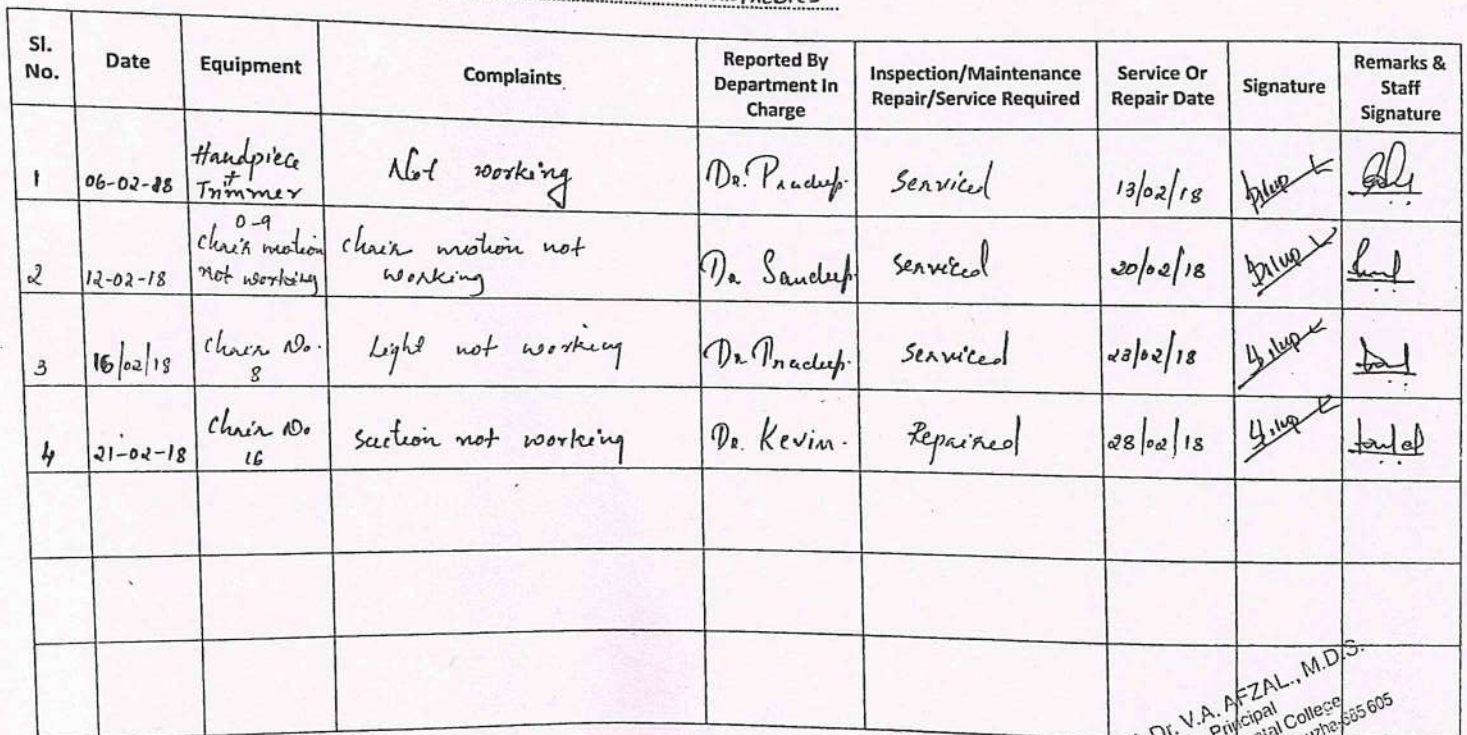 Sl. No. Date Equipment Complaints Reported By Department In Charge Inspection/Maintenance Repair/Service Required Service Or Repair Date Signature Remarks & Staff Signature
1 06-02-18 Handpiece + Trimmer Not working Dr. Pradeep. Serviced 13/02/18
2 12-02-18 0-9 Chair motion not working chair motion not working Dr Sandeep. Serviced 20/02/18
3 16/02/18 Chair No. 8 Light not working Dr Pradeep. Serviced 23/02/18
4 21-02-18 Chair No 16 Suction not working Dr. Kevin. Repaired 28/02/18
Dr. V.A. AFZAL., M.D.S.
Principal
College
685 605